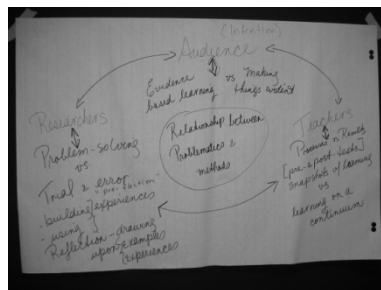 (Intention)
Audience
Evidence
based learning vs Making
things evident
Researchers
Problem-solving
vs
Trial & error
- building experiences
- using
Reflection - drawing
upon examples
experiences
Relationship between
Problematics &
methods
Teachers
Process n Results
[pre- & post-tests]
snapshots of learning
vs
learning on a
continuum